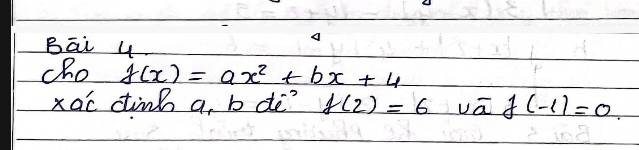 Bài 4.
cho f(x) = ax² + bx + 4
xác định a, b để f(2) = 6 và f(-1) = 0.